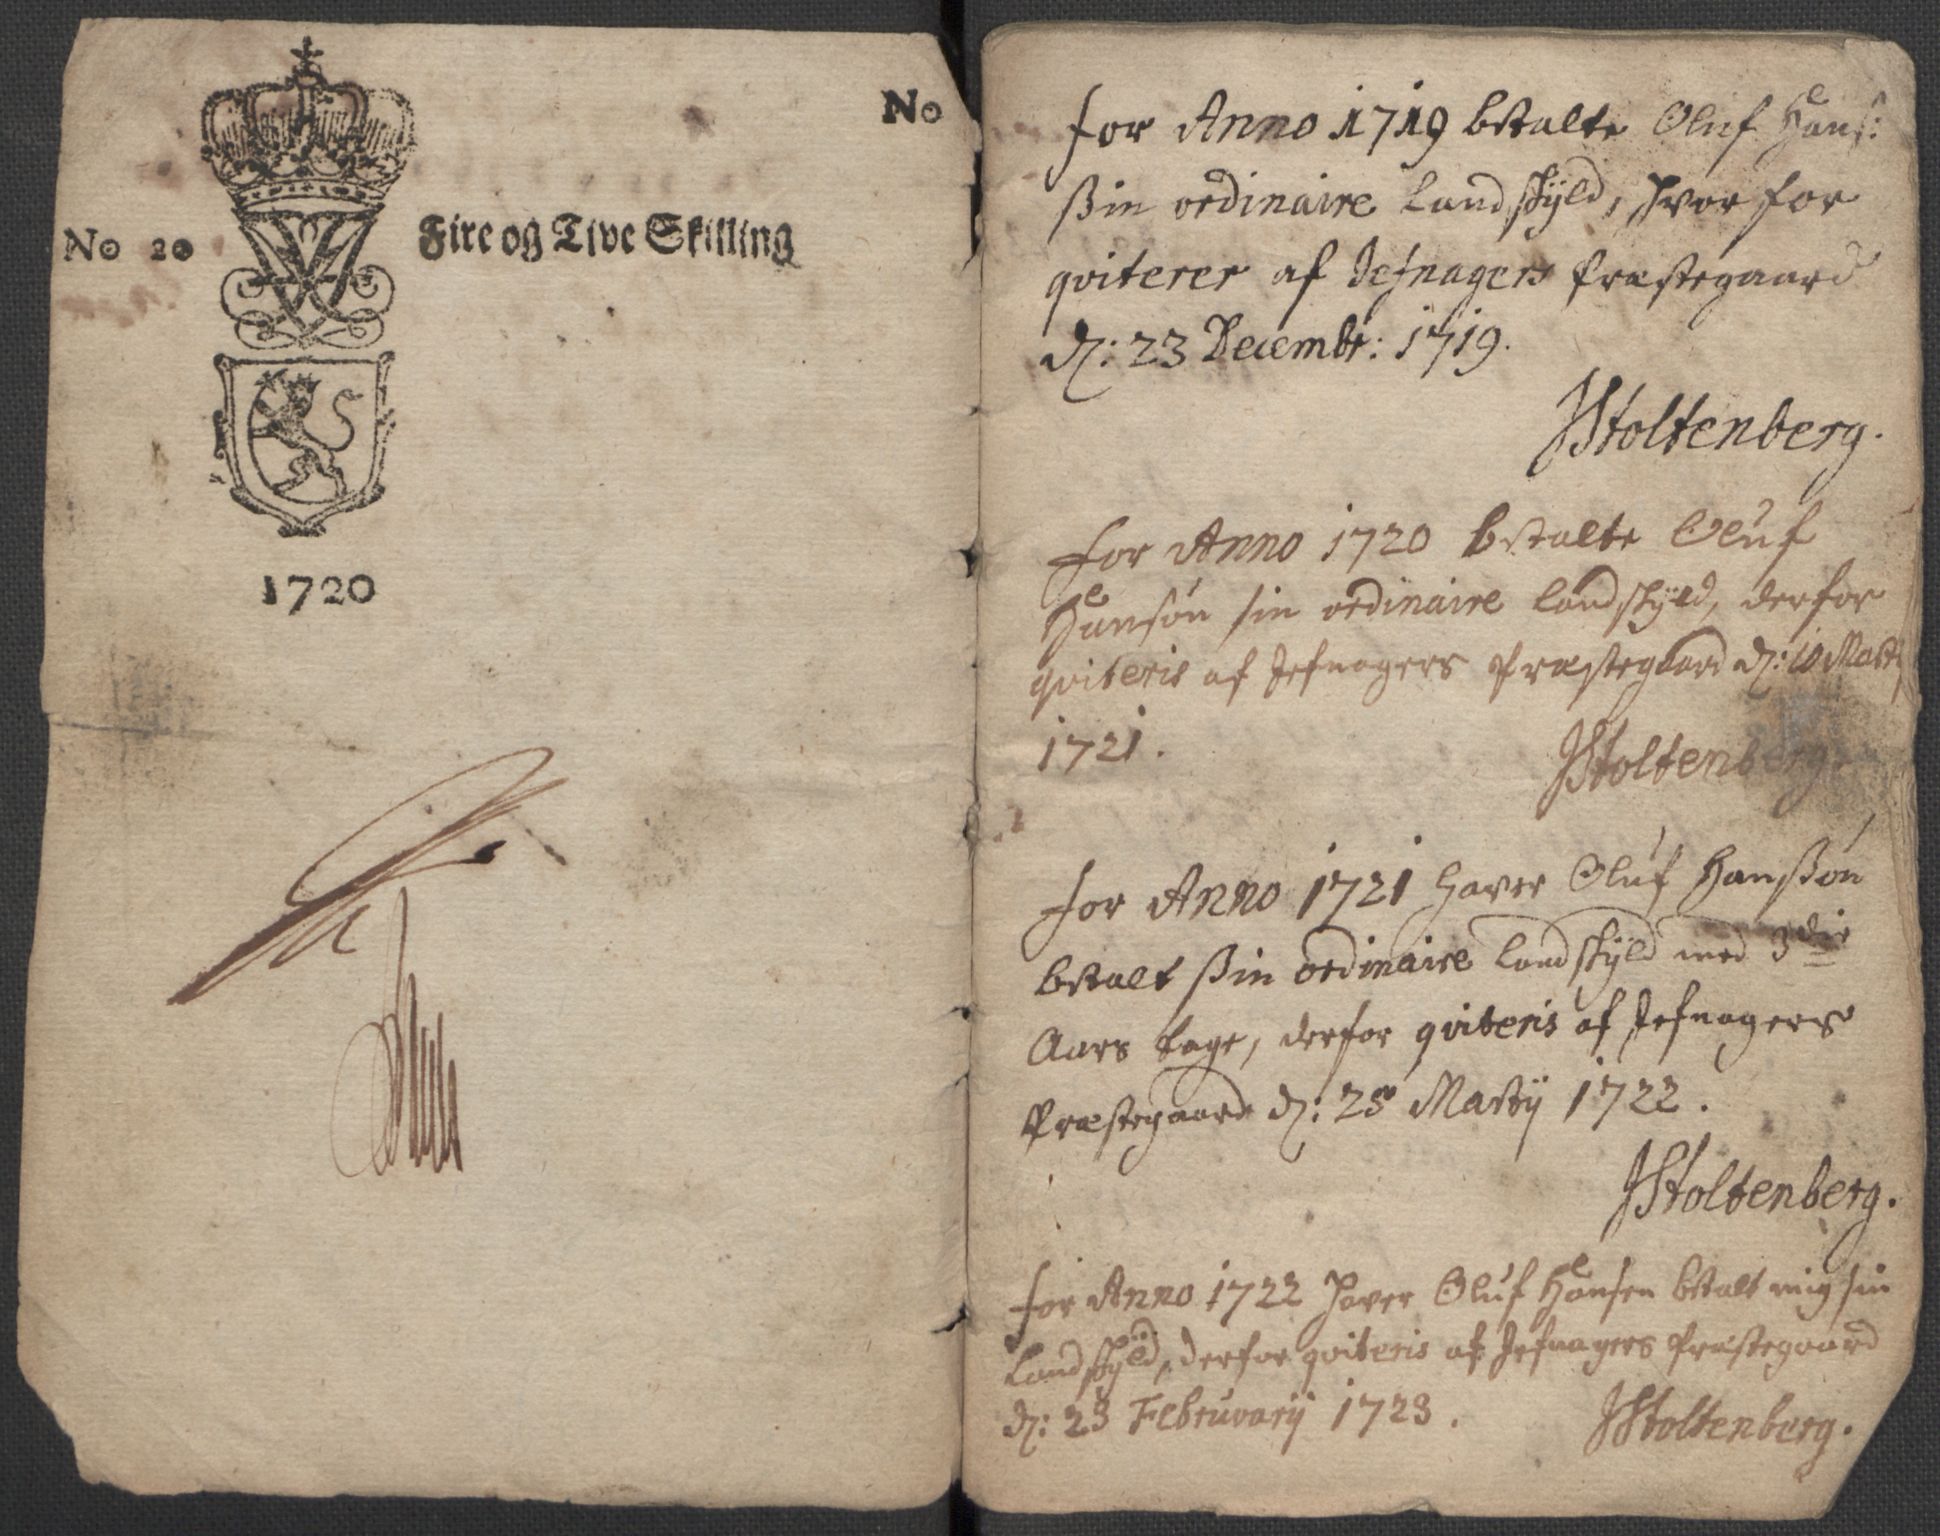 No
No 20
Fire og Tive Skilling
1720
for Anno 1719 betalte Oluf Hans:
ßin ordinaire Landskÿld, hvor for
qviterer af Jefnagers Præstegaard
d: 23 Decembr: 1719.
JStoltenberg.
for Anno 1720 betalte Oluf
Hansøn sin ordinaire Landskÿld, derfor
qviteris af Jefnagers Præstegaard d: 10 Martj
1721.
JStoltenberg.
for Anno 1721 haver Oluf Hanßøn
betalt ßin ordinaire Landskÿld med 3die
Aars tage, derfor qviteris af Jefnagers
Præstegaard d: 28 Martij 1722.
JStoltenberg.
for Anno 1722 haver Oluf Hansen betalt mig sin
Landskÿld, derfor qviteris af Jefnagers Præstegaard
d: 23 Februarij 1723.
JStoltenberg.